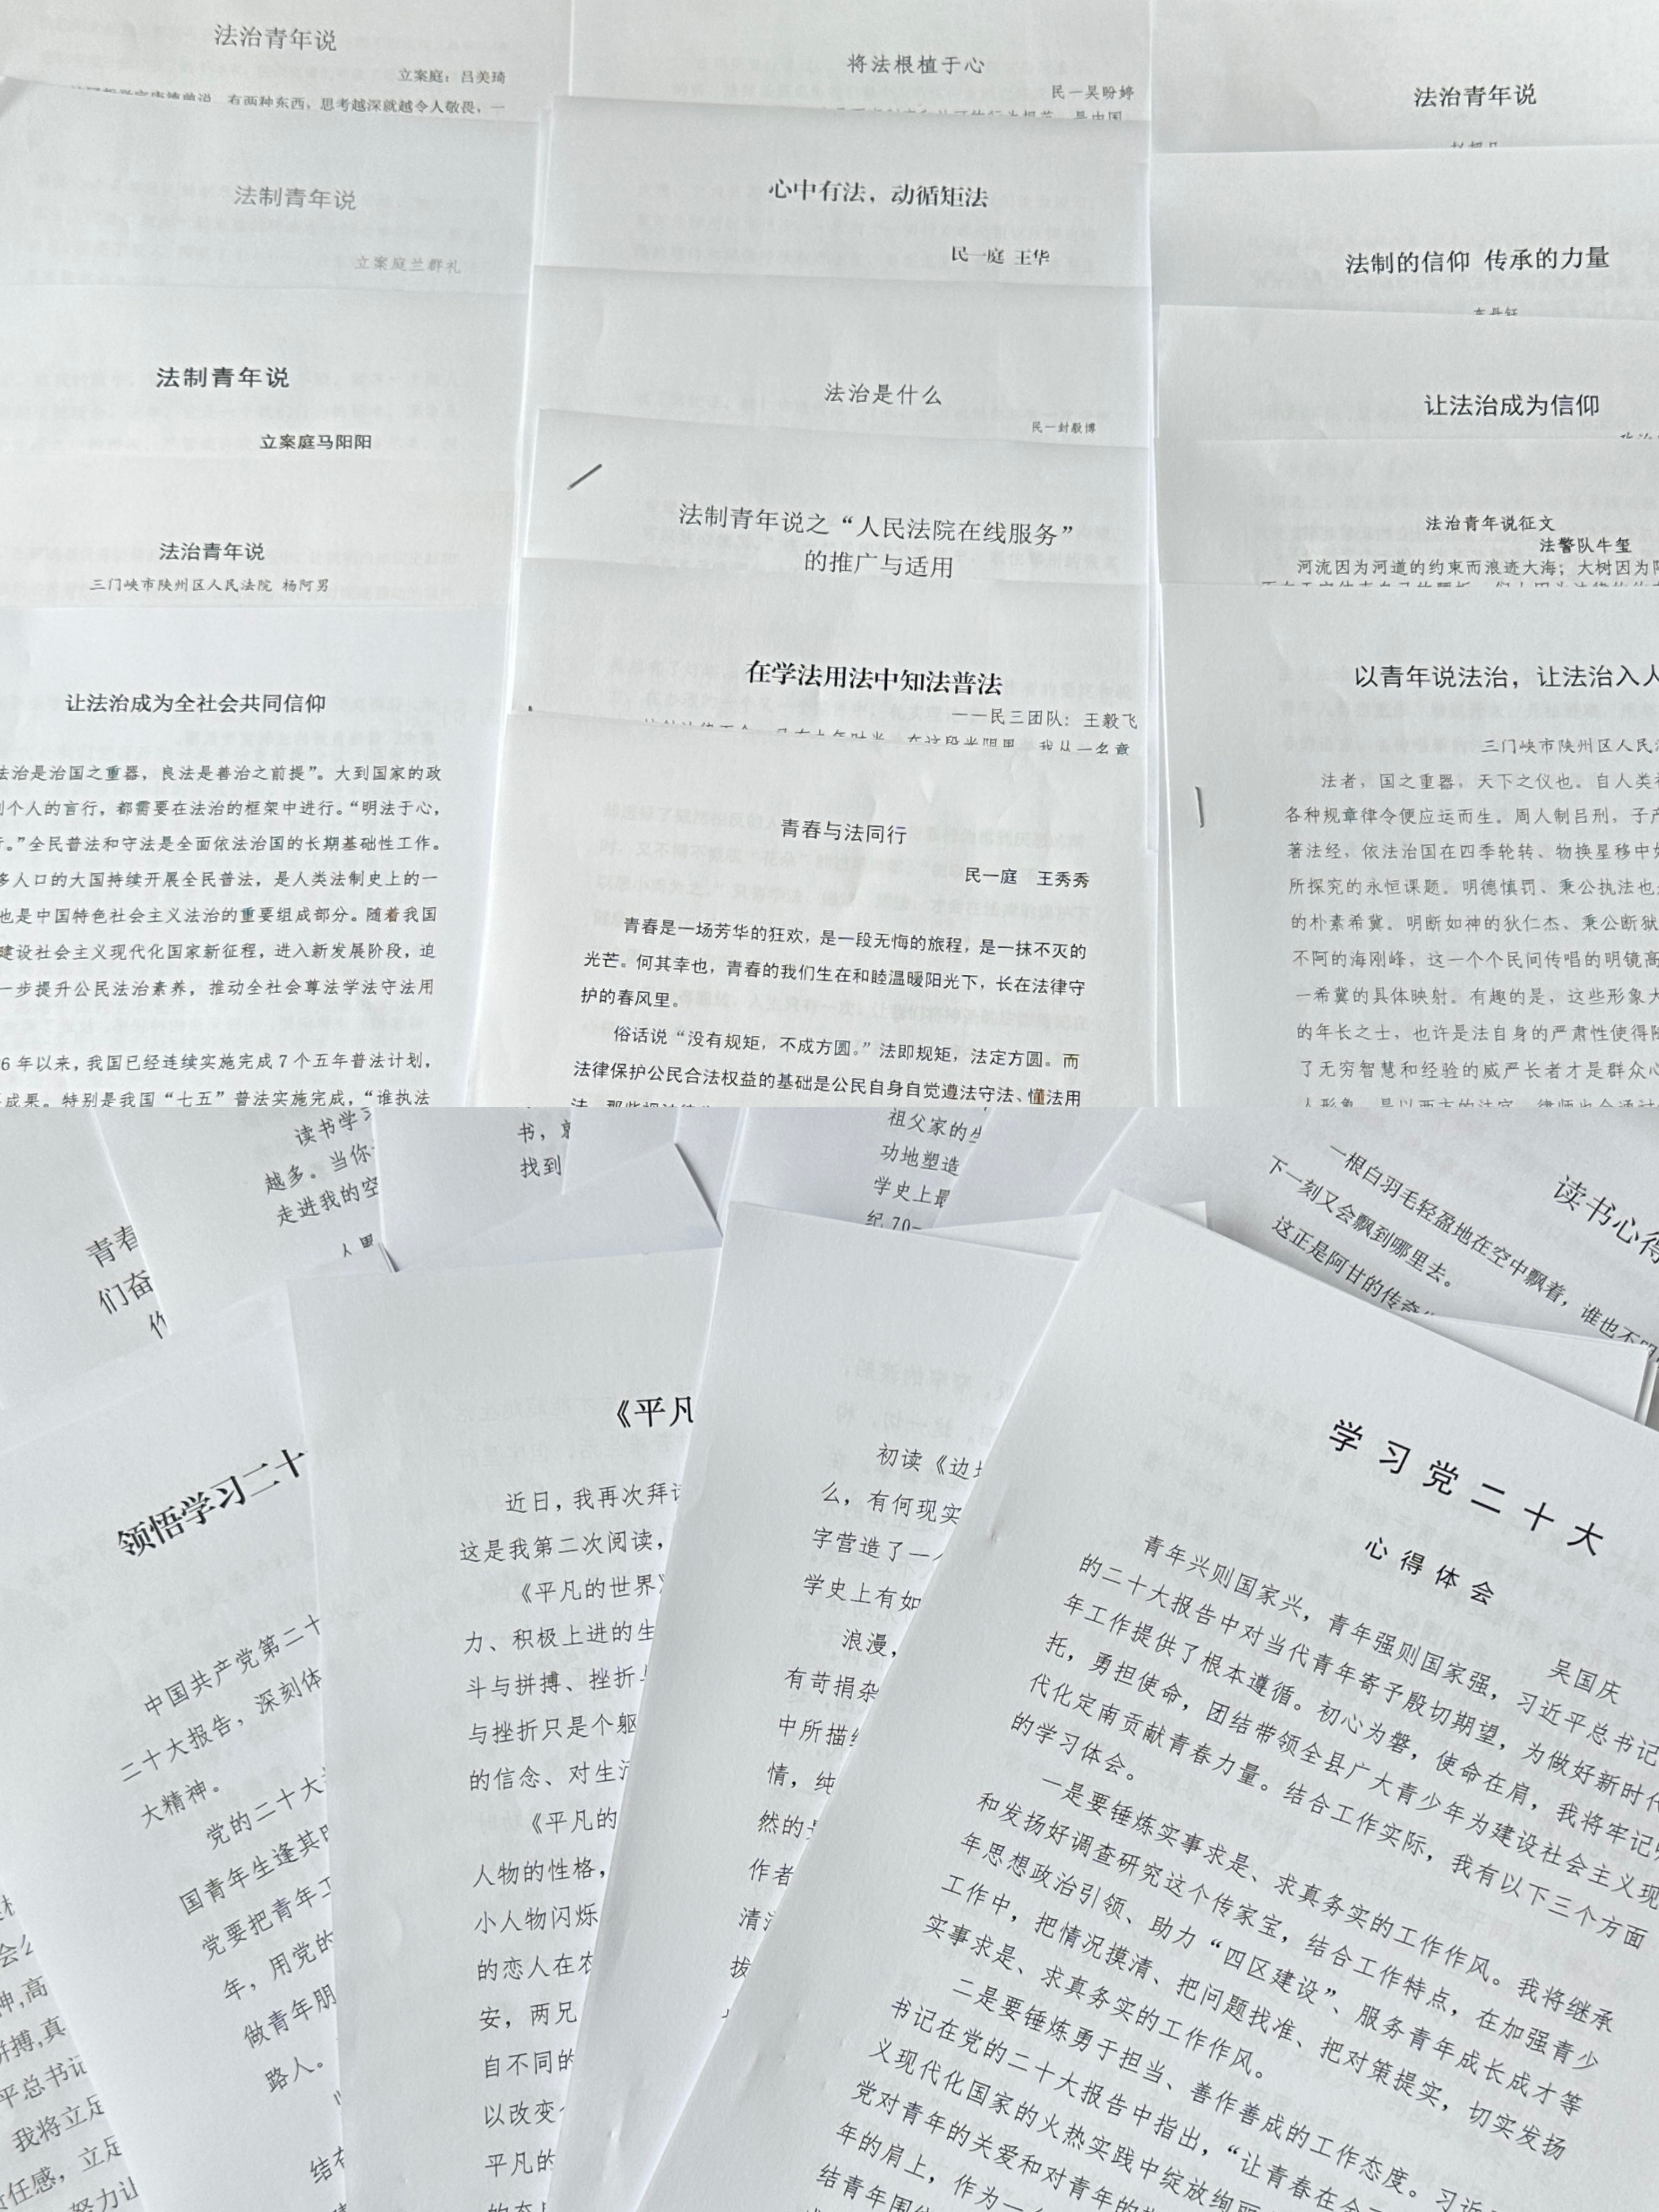 法治青年说
立案庭：吕美琦
有两种东西，思考越深就越令人敬畏，一
法制青年说
立案庭兰群礼
法制青年说
立案庭马阳阳
法治青年说
三门峡市陕州区人民法院 杨阿男
让法治成为全社会共同信仰
法治是治国之重器，良法是善治之前提”。大到国家的政
个人的言行，都需要在法治的框架中进行。“明法于心，
。”全民普法和守法是全面依法治国的长期基础性工作。
多人口的大国持续开展全民普法，是人类法制史上的一
也是中国特色社会主义法治的重要组成部分。随着我国
建设社会主义现代化国家新征程，进入新发展阶段，迫
一步提升公民法治素养，推动全社会尊法学法守法用
6年以来，我国已经连续实施完成7个五年普法计划，
成果。特别是我国“七五”普法实施完成，“谁执法
将法根植于心
民一吴盼婷
心中有法，动循矩法
民一庭 王华
法治是什么
民一封毅博
法制青年说之“人民法院在线服务”
的推广与适用
在学法用法中知法普法
——民三团队：王毅飞
青春与法同行
民一庭 王秀秀
青春是一场芳华的狂欢，是一段无悔的旅程，是一抹不灭的
光芒。何其幸也，青春的我们生在和睦温暖阳光下，长在法律守
护的春风里。
俗话说“没有规矩，不成方圆。”法即规矩，法定方圆。而
法律保护公民合法权益的基础是公民自身自觉遵法守法、懂法用
法治青年说
法制的信仰 传承的力量
让法治成为信仰
法治青年说征文
法警队牛玺
河流因为河道的约束而浪迹大海；大树因为
以青年说法治，让法治入人
三门峡市陕州区人民
法者，国之重器，天下之仪也。自人类社
各种规章律令便应运而生。周人制吕刑，子产
著法经，依法治国在四季轮转、物换星移中如
所探究的永恒课题。明德慎罚、秉公执法也
的朴素希冀。明断如神的狄仁杰、秉公断狱
不阿的海刚峰，这一个个民间传唱的明镜高
一希冀的具体映射。有趣的是，这些形象大
的年长之士，也许是法自身的严肃性使得
了无穷智慧和经验的威严长者才是群众心
青春
们奋
读书学习
越多。当你
走进我的空
书，
找到
祖父家的生
功地塑造
学史上最
纪70
读书心得
一根白羽毛轻盈地在空中飘着，谁也不
下一刻又会飘到哪里去。
这正是阿甘的传奇
神,高
拼搏,真
平总书记
我将立足
任感，立足
努力让
领悟学习二十
中国共产党第二十
二十大报告，深刻体
大精神。
党的二十大
国青年生逢其时
党要把青年工
年，用党的
做青年朋
路人。
《平凡
近日，我再次拜读
这是我第二次阅读，
《平凡的世界》
力、积极上进的生
斗与拼搏、挫折与
与挫折只是个躯
的信念、对生活
《平凡的
人物的性格，
小人物闪烁
的恋人在农
安，两兄
自不同的
以改变
平凡的
初读《边城
么，有何现实
字营造了一个
学史上有如
浪漫，
有苛捐杂
中所描绘
情，纯
然的
作者
清
拔
学习党二十大
心得体会
吴国庆
青年兴则国家兴，青年强则国家强，习近平总书记
的二十大报告中对当代青年寄予殷切期望，为做好新时代
年工作提供了根本遵循。初心为磐，使命在肩，我将牢记
托，勇担使命，团结带领全县广大青少年为建设社会主义现
代化定南贡献青春力量。结合工作实际，我有以下三个方面
的学习体会。
一是要锤炼实事求是、求真务实的工作作风。我将继承
和发扬好调查研究这个传家宝，结合工作特点，在加强青少
年思想政治引领、助力“四区建设”、服务青年成长成才等
工作中，把情况摸清、把问题找准、把对策提实，切实发扬
实事求是、求真务实的工作作风。
二是要锤炼勇于担当、善作善成的工作态度。习近
书记在党的二十大报告中指出，“让青春在全
义现代化国家的火热实践中绽放绚丽
党对青年的关爱和对青年的
年的肩上，作为一
结青年围